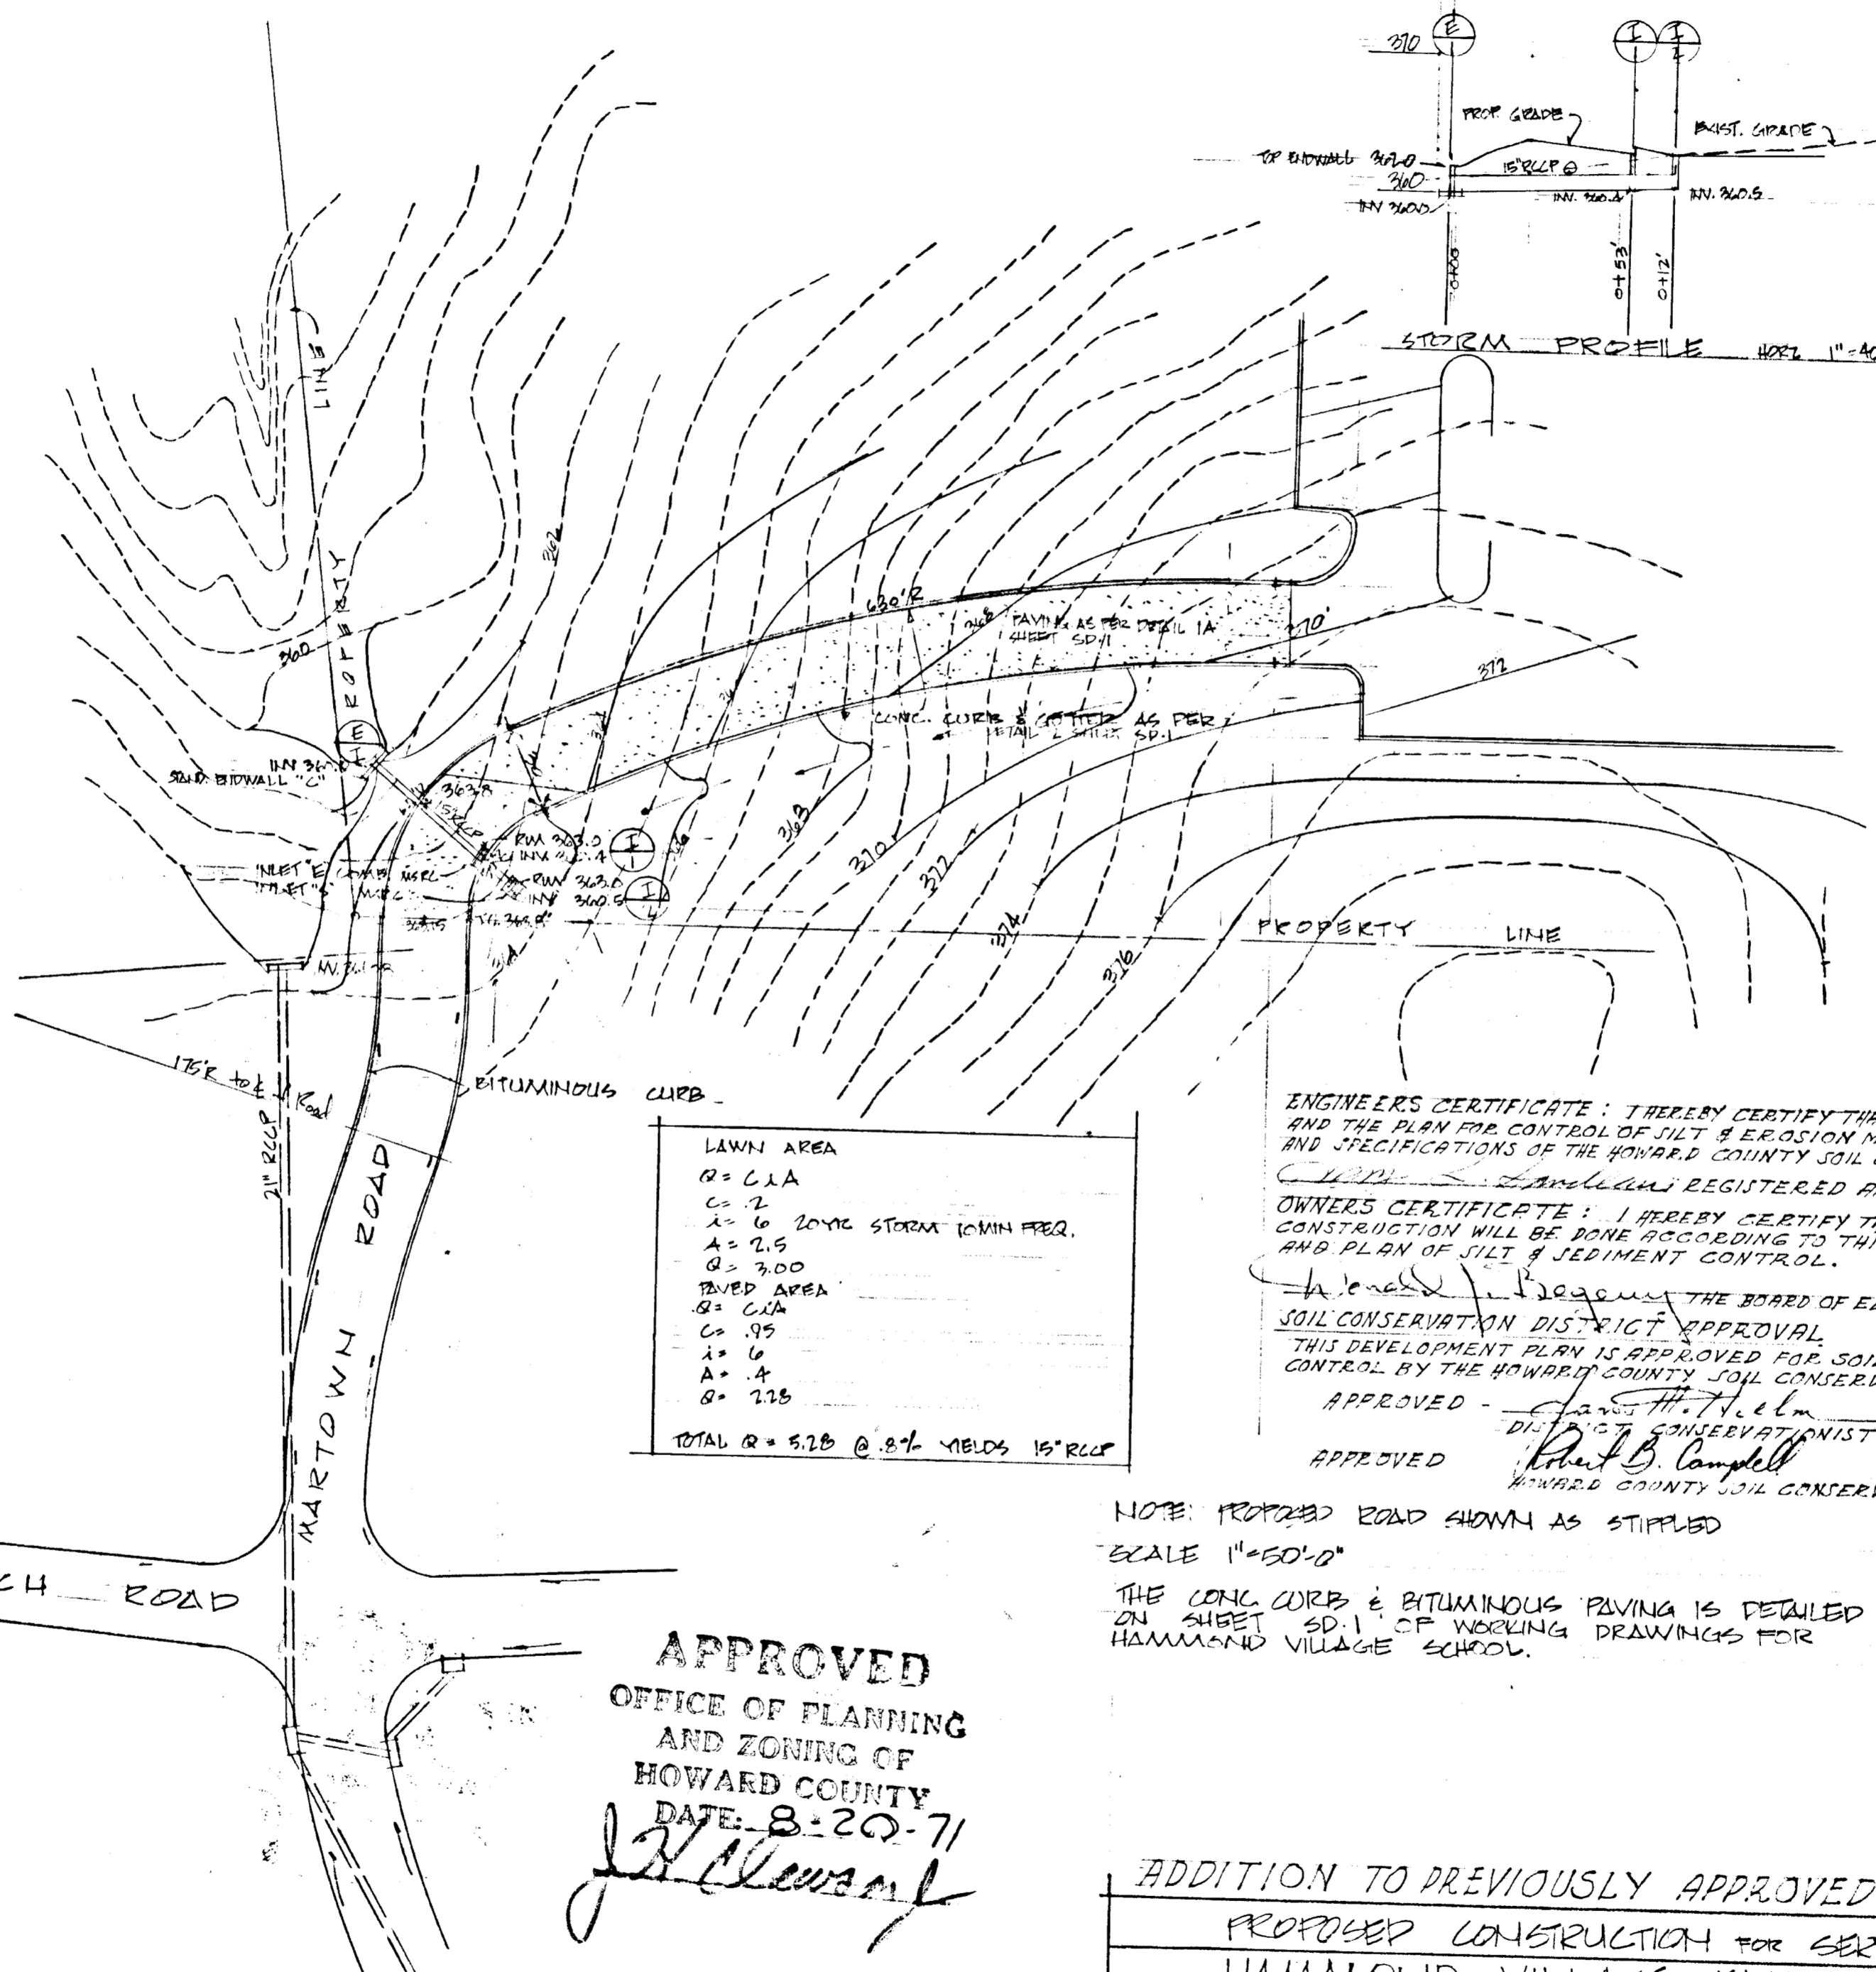 370
E
I
I
2
PROP. GRADE
EXIST. GRADE
TOP ENDWALL 362.0
360
15" RCCP @
INV 360.0
INV. 360.4
INV. 360.5
0+00
0+53'
0+12'
STORM PROFILE HORZ 1"=40
PROPERTY LINE
362
360
630'R
368
PAVING AS PER DETAIL 1A
SHEET SD.1
370
372
CONC. CURB & GUTTER AS PER
DETAIL 2 SHEET SD.1
E
1
STAND. ENDWALL "C"
363.8
15" RCCP
RIM 363.0
I
1
RIM 363.0
INV 360.5
I
INLET "E" COMB. MSRC
INLET "S" MSRC
368
370
372
374
376
PROPERTY LINE
175'R to ℄ Road
21" RCCP
BITUMINOUS CURB
MARTOWN ROAD
CH ROAD
LAWN AREA
Q= CiA
C= .2
i= 6 20YR STORM 10MIN FREQ.
A= 2.5
Q= 3.00
PAVED AREA
Q= CiA
C= .95
i= 6
A= .4
Q= 2.28
TOTAL Q= 5.28 @ .8% YIELDS 15" RCCP
ENGINEERS CERTIFICATE: I HEREBY CERTIFY THA
AND THE PLAN FOR CONTROL OF SILT & EROSION M
AND SPECIFICATIONS OF THE HOWARD COUNTY SOIL
REGISTERED A
OWNERS CERTIFICATE: I HEREBY CERTIFY T
CONSTRUCTION WILL BE DONE ACCORDING TO THI
AND PLAN OF SILT & SEDIMENT CONTROL.
THE BOARD OF E
SOIL CONSERVATION DISTRICT APPROVAL
THIS DEVELOPMENT PLAN IS APPROVED FOR SOIL
CONTROL BY THE HOWARD COUNTY SOIL CONSERV
APPROVED -
DISTRICT CONSERVATIONIST
APPROVED Robert B. Campbell
HOWARD COUNTY SOIL CONSERV
NOTE: PROPOSED ROAD SHOWN AS STIPPLED
SCALE 1"=50'-0"
THE CONC. CURB & BITUMINOUS PAVING IS DETAILED
ON SHEET SD.1 OF WORKING DRAWINGS FOR
HAMMOND VILLAGE SCHOOL.
APPROVED
OFFICE OF PLANNING
AND ZONING OF
HOWARD COUNTY
DATE: 8-20-71
ADDITION TO PREVIOUSLY APPROVED
PROPOSED CONSTRUCTION FOR SER
HAMMOND VILLAGE